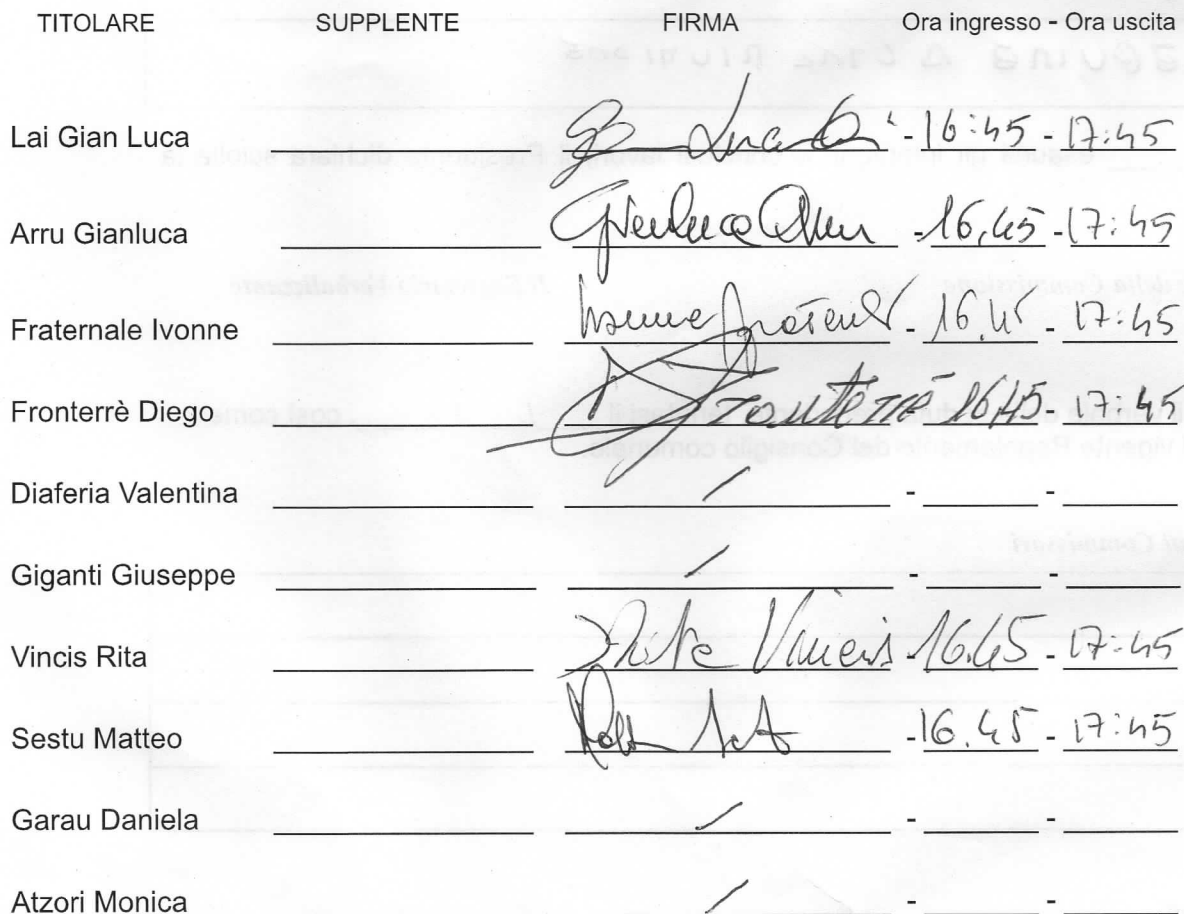 TITOLARE SUPPLENTE FIRMA Ora ingresso - Ora uscita
Lai Gian Luca Luca Lai - 16:45 - 17:45
Arru Gianluca Gianluca Arru - 16,45 - 17:45
Fraternale Ivonne Ivonne - 16.45 - 17:45
Fronterrè Diego Fronterrè 16,45 - 17:45
Diaferia Valentina / - -
Giganti Giuseppe / - -
Vincis Rita Rita Vincis - 16.45 - 17:45
Sestu Matteo - 16.45 - 17:45
Garau Daniela / - -
Atzori Monica / - -